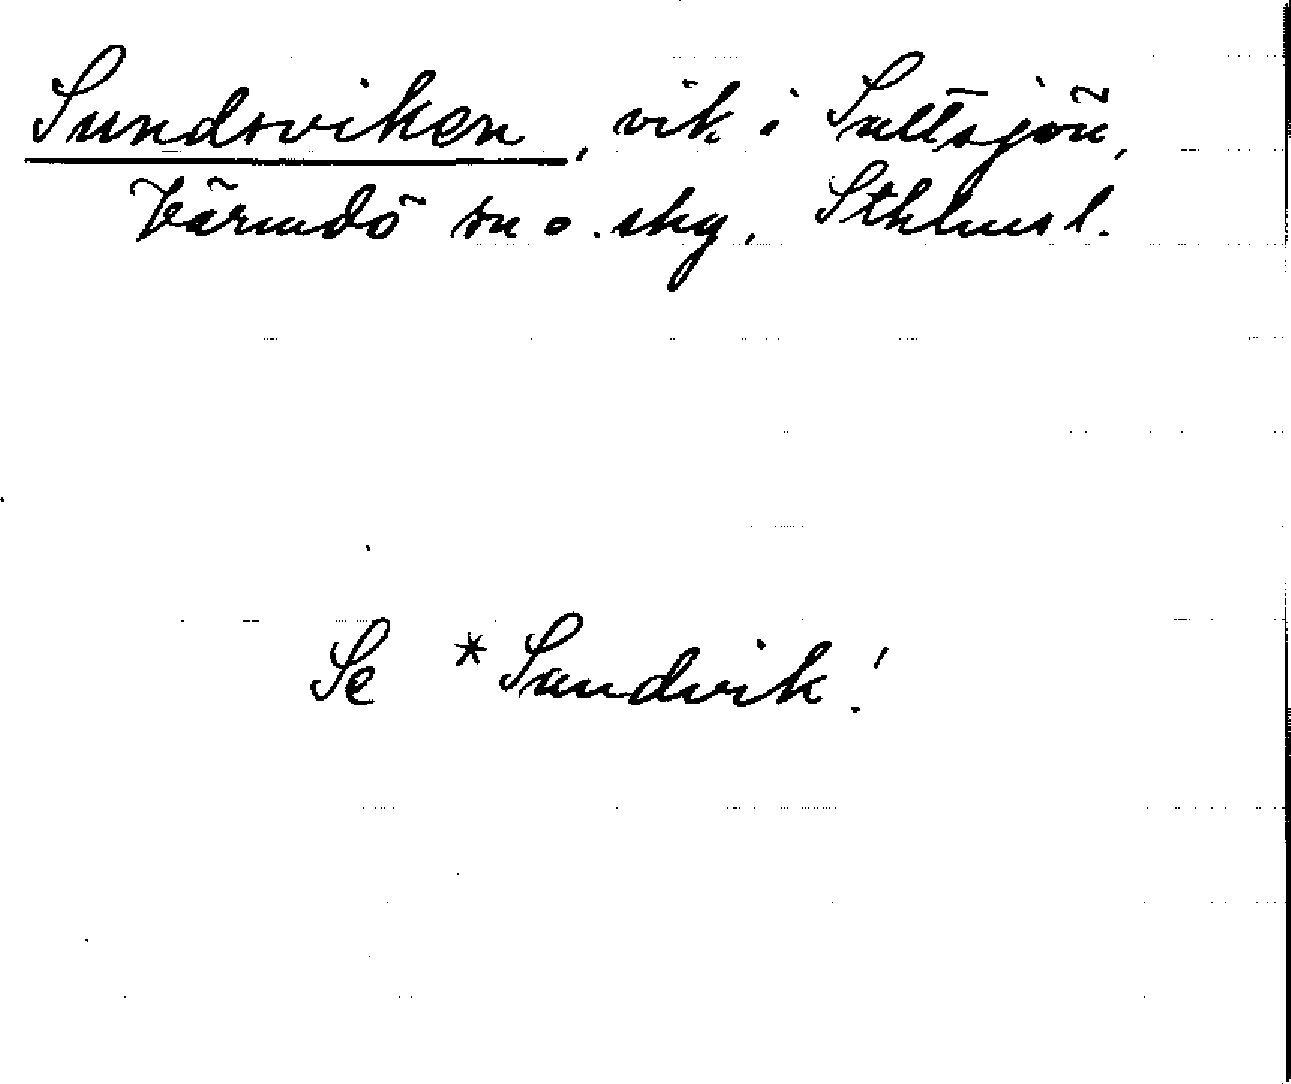 Sundsviken, vik i Saltsjön,
Värmdö sn o. skg, Sthlms l.
Se *Sandvik!